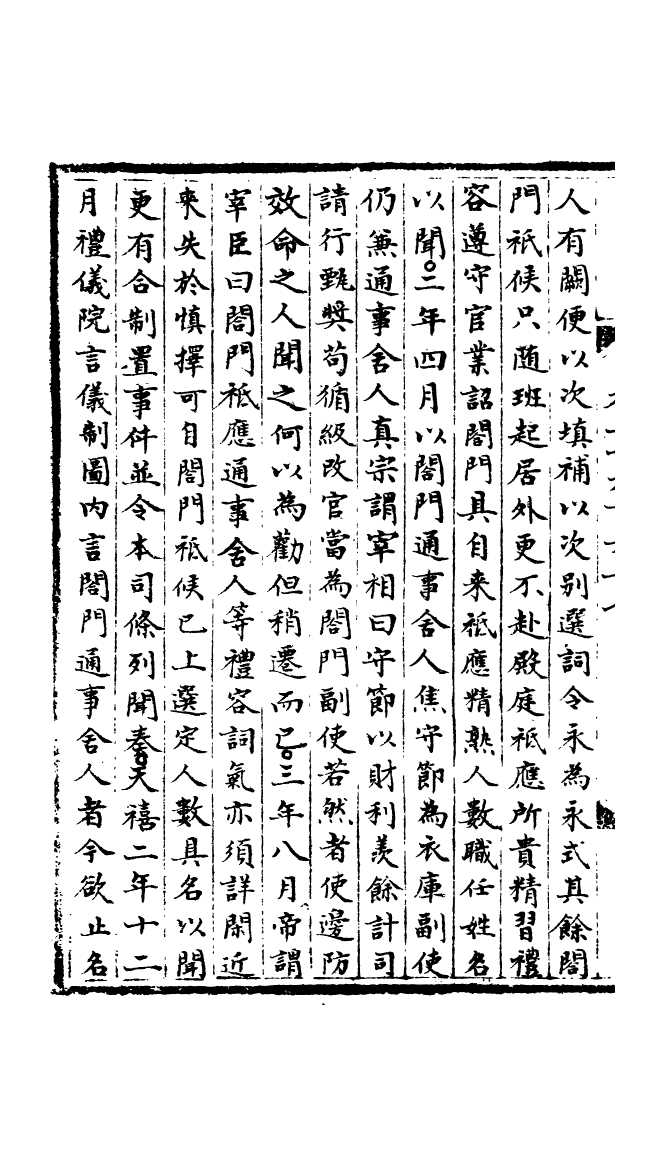 人有闕便以次填補以次别選詞令永為永式其餘閤
門祗候只随班起居外更不赴殿庭祗應所貴精習禮
容遵守官業詔閤門具自来祗應精熟人數職任姓名
以聞○三年四月以閤門通事舍人焦守節為衣庫副使
仍兼通事舍人真宗謂宰相曰守節以財利羨餘計司
請行甄奬苟循級改官當為閤門副使若然者使邊防
效命之人聞之何以為勸但稍遷而已○三年八月帝謂
宰臣曰閤門祗應通事舍人等禮容詞氣亦須詳閑近
来失於慎擇可自閤門祗候已上選定人數具名以聞
更有合制置事件並令本司條列聞奏○天禧二年十二
月禮儀院言儀制圖内言閤門通事舍人者今欲止名